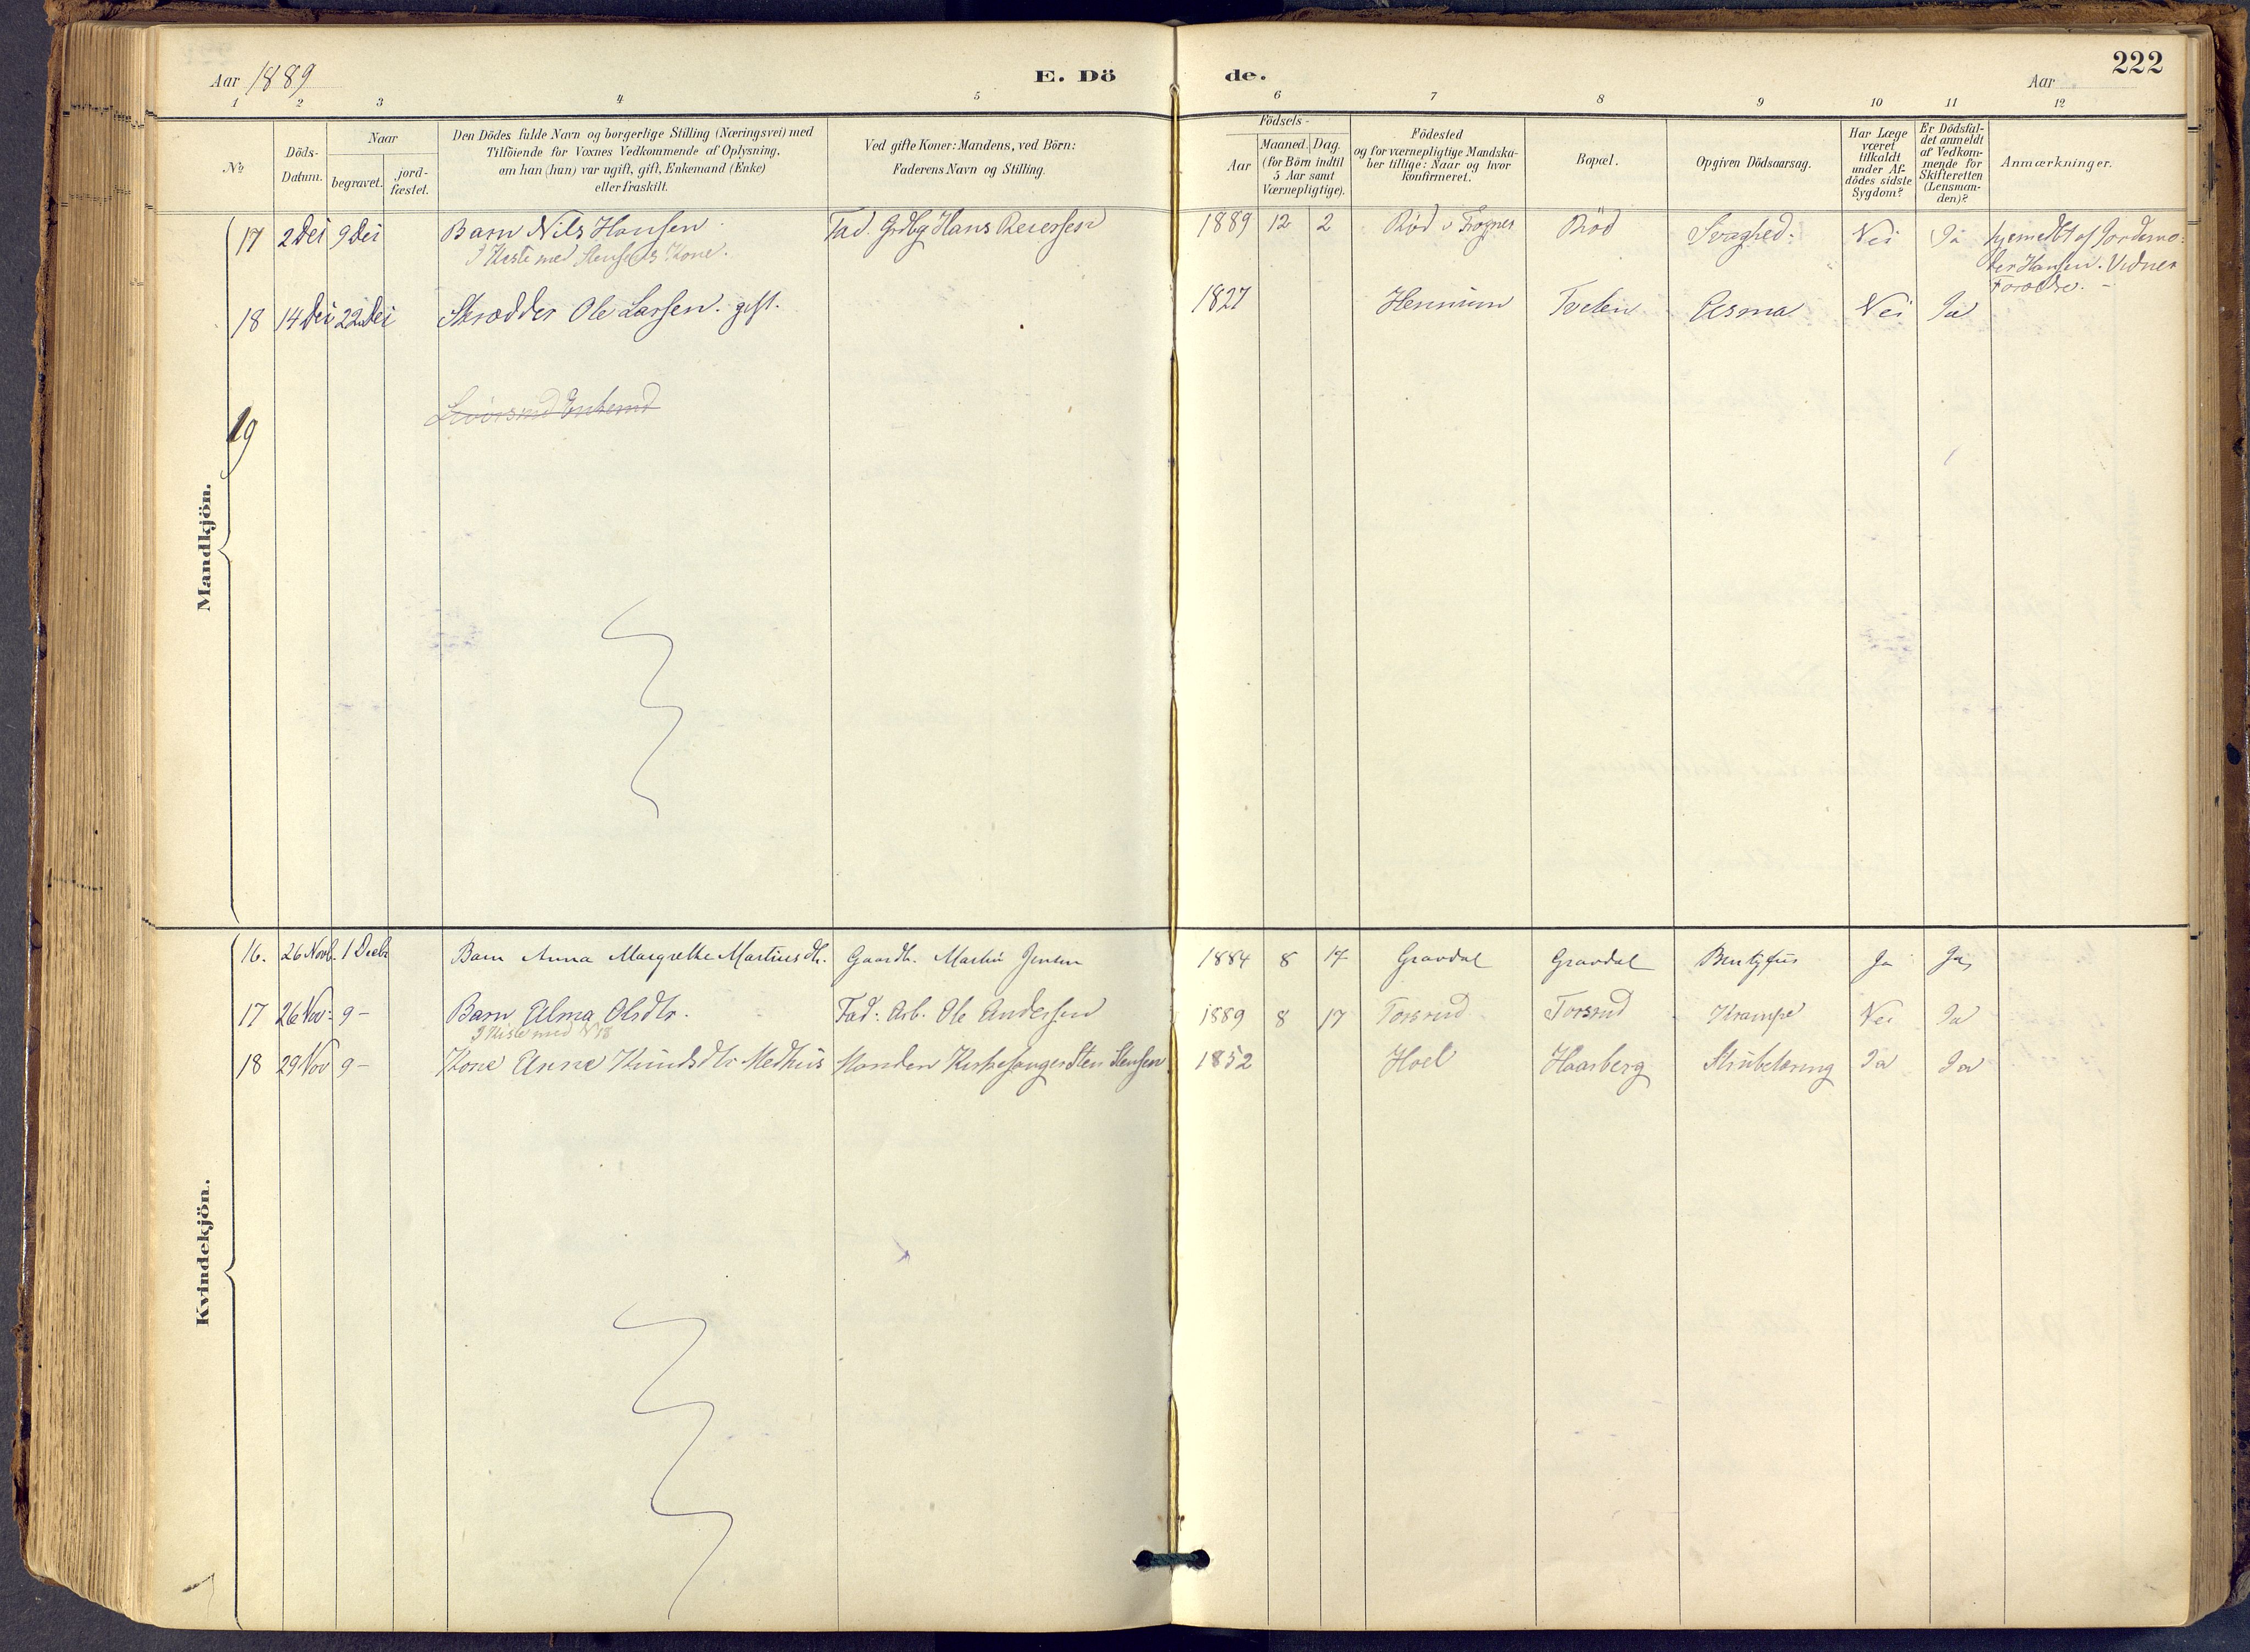 Aar 1889
E. Dö
de.
222
Aar
1 2 3 4 5 6 7 8 9 10 11 12
No
Döds-
Datum.
Naar
begravet.
jord-
fæstet.
Den Dödes fulde Navn og borgerlige Stilling (Næringsvei) med
Tilföiende for Voxnes Vedkommende af Oplysning,
om han (hun) var ugift, gift, Enkemand (Enke)
eller fraskilt.
Ved gifte Koner: Mandens, ved Börn:
Faderens Navn og Stilling.
Födsels-
Aar
Maaned. Dag.
(for Börn indtil
5 Aar samt
Værnepligtige).
Födested
og for værnepligtige Mandska-
ber tillige: Naar og hvor
konfirmeret.
Bopæl.
Opgiven Dödsaarsag.
Har Læge
været
tilkaldt
under Af-
dödes sidste
Sygdom?
Er Dödsfal-
det anmeldt
af Vedkom-
mende for
Skifteretten
(Lensman-
den)?
Anmærkninger.
Mandkjön.
17 2 Dei 9 Dei Barn Nils Hansen Fad. Grdbg Hans Reiersen 1889 12 2 Röd v Fogner Röd Svaghed. Nei Ja hjemedbt af Jordemo-
I Kiste med Stensens Kone. der Hansen. Vidner
Foræld.
18 14 Dei 22 Dei Skrædder Ole Larsen. gift. 1827 Hennum Tveten Asma Nei Ja
19
Kvindekjön.
16. 26 Novb. 1 Decbr Barn Anna Margrethe Martinsdtr. Gaardb. Martin Jensen 1884 8 17 Gravdal Gravdal Bentyfus Ja Ja
17 26 Nov: 9 - Barn Alma Olsdtr. Fad: Arb. Ole Andersen 1889 8 17 Torsrud Torsrud Krampe Nei Ja
I Kiste med N 18
18 29 Nov 9 - Kone Anne Knudsdtr Medhus Manden Kirkesanger Sten Stensen 1852 Hoel Haarberg Strubetæring Ja Ja